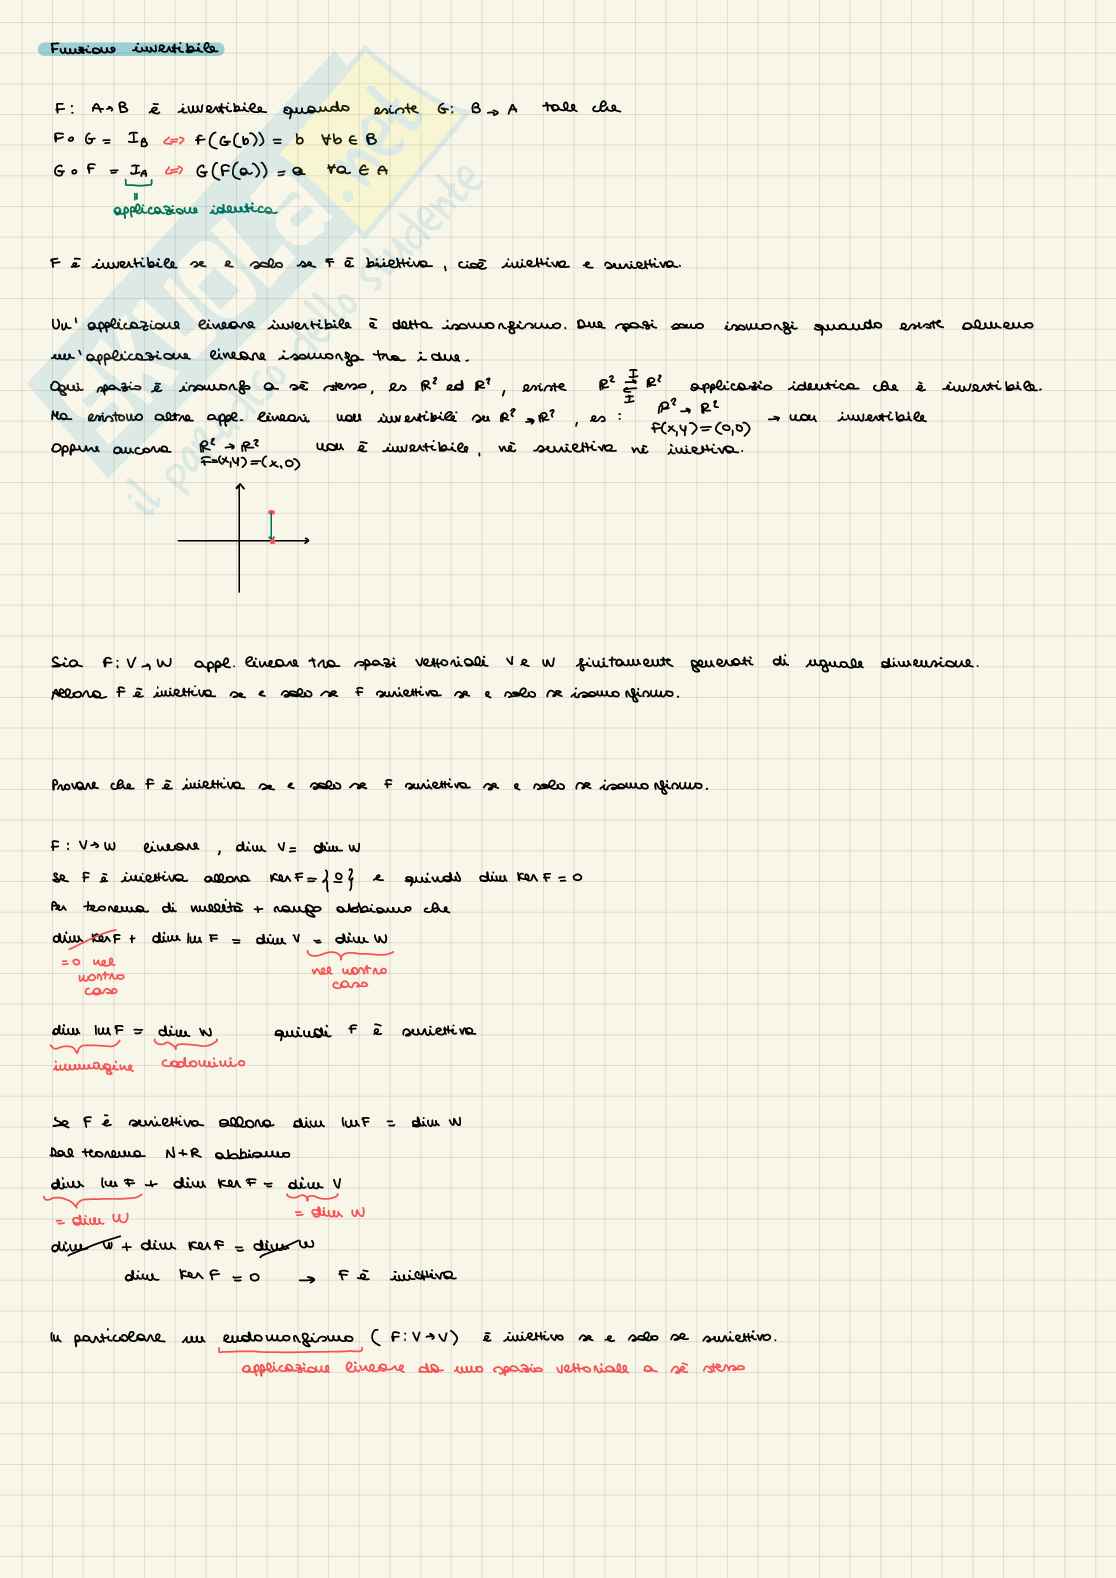 Funzione invertibile
F: A→B è invertibile quando esiste G: B→A tale che
F∘G = I_B ⇔ F(G(b)) = b ∀b ∈ B
G∘F = I_A ⇔ G(F(a)) = a ∀a ∈ A
applicazione identica
F è invertibile se e solo se F è biiettiva, cioè iniettiva e suriettiva.
Un'applicazione lineare invertibile è detta isomorfismo. Due spazi sono isomorfi quando esiste almeno
un'applicazione lineare isomorfa tra i due.
Ogni spazio è isomorfo a sè stesso, es R² ed R², esiste R² ⇄ R² applicazio identica che è invertibile.
I
I
Ma esistono altre appl. lineari non invertibili su R²→R², es: R²→R² → non invertibile
F(x,y)=(0,0)
Oppure ancora R²→R² non è invertibile, nè suriettiva nè iniettiva.
F=(x,y)=(x,0)
Sia F: V→W appl. lineare tra spazi vettoriali V e W finitamente generati di uguale dimensione.
Allora F è iniettiva se e solo se F suriettiva se e solo se isomorfismo.
Provare che F è iniettiva se e solo se F suriettiva se e solo se isomorfismo.
F: V→W lineare, dim V = dim W
Se F è iniettiva allora Ker F = {0} e quindi dim Ker F = 0
Per teorema di nullità + rango abbiamo che
dim Ker F + dim Im F = dim V = dim W
=0 nel nostro caso
nel nostro caso
dim Im F = dim W quindi F è suriettiva
immagine codominio
Se F è suriettiva allora dim Im F = dim W
Dal teorema N+R abbiamo
dim Im F + dim Ker F = dim V
= dim W = dim W
dim W + dim Ker F = dim W
dim Ker F = 0 → F è iniettiva
In particolare un endomorfismo (F: V→V) è iniettivo se e solo se suriettivo.
applicazione lineare da uno spazio vettoriale a sè stesso
SKUOLA.net
il paradiso dello studente